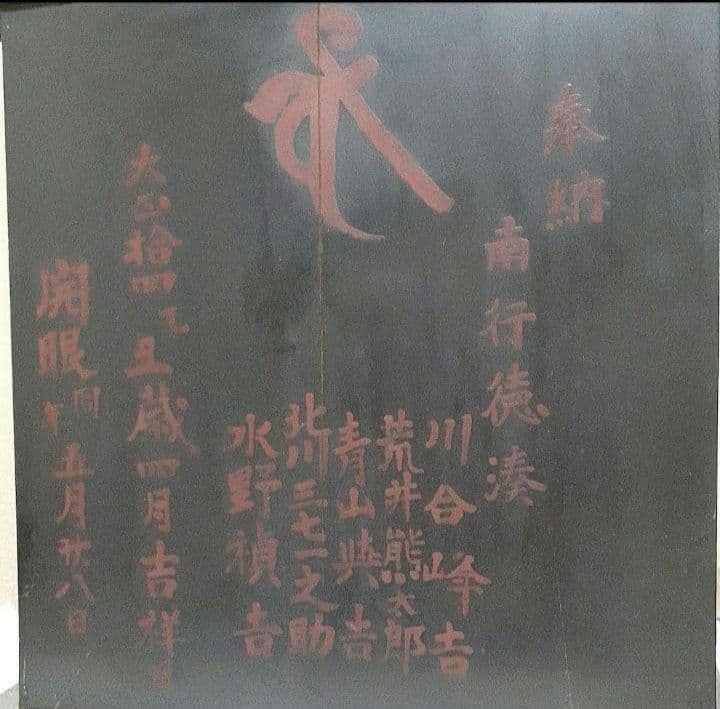 奉納
南行徳湊
川合峰吉
荒井熊太郎
青山與吉
北川三七之助
水野禎吉
大正拾四乙丑歳四月吉祥日
開眼同年五月廿八日